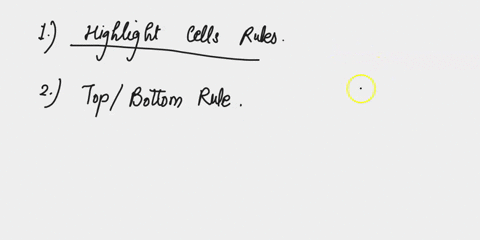 1.) Highlight Cells Rules.
2.) Top/Bottom Rule.